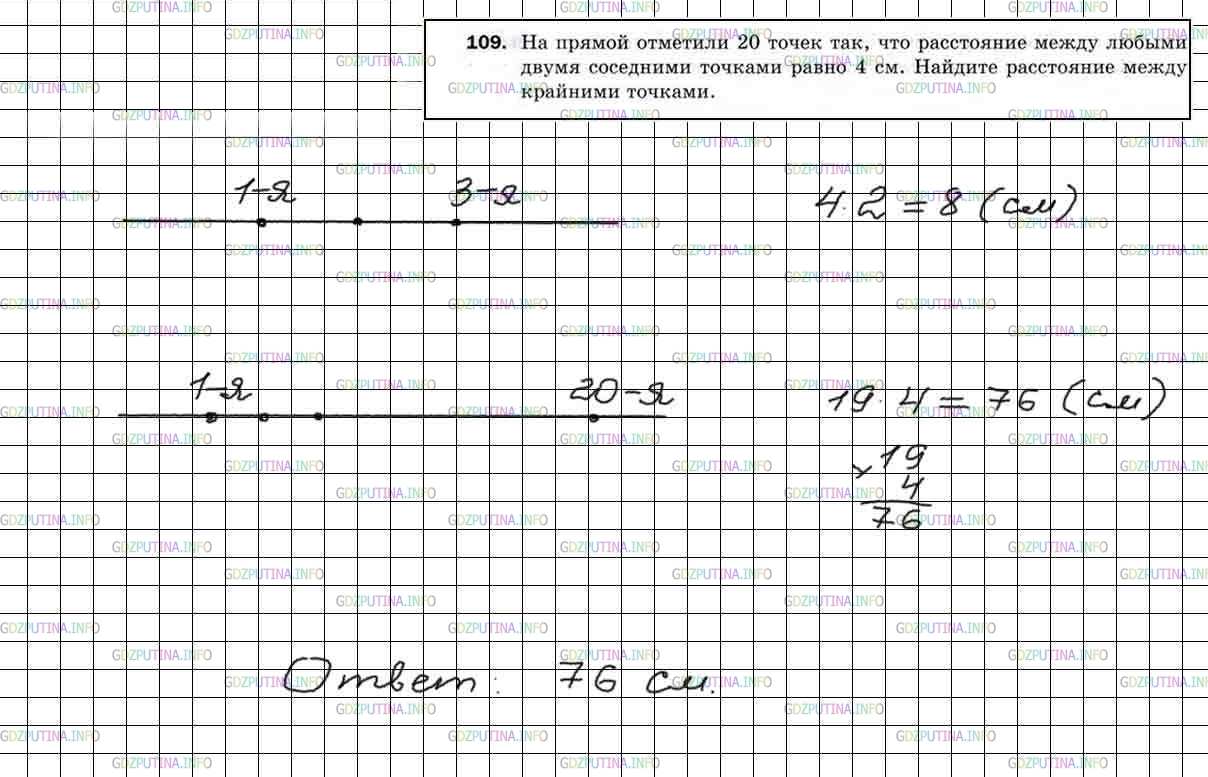 109. На прямой отметили 20 точек так, что расстояние между любыми
двумя соседними точками равно 4 см. Найдите расстояние между
крайними точками.
1-я 3-я 4·2 = 8 (см)
1-я 20-я 19·4 = 76 (см)
× 19
4
76
Ответ: 76 см.
GDZPUTINA.INFO